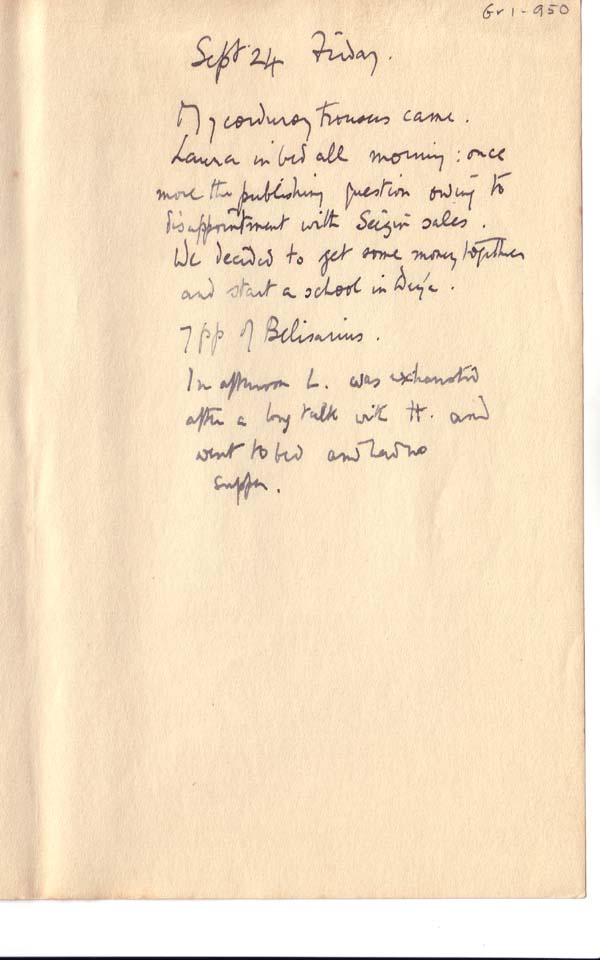 Gr1-950
Sept 24 Friday.
My corduroy trousers came.
Laura in bed all morning: once
more the publishing question owing to
disappointment with Seizin sales.
We decided to get some money together
and start a school in Deyá.
7 pp of Belisarius.
In afternoon L. was exhausted
after a long talk with H. and
went to bed and had no
supper.